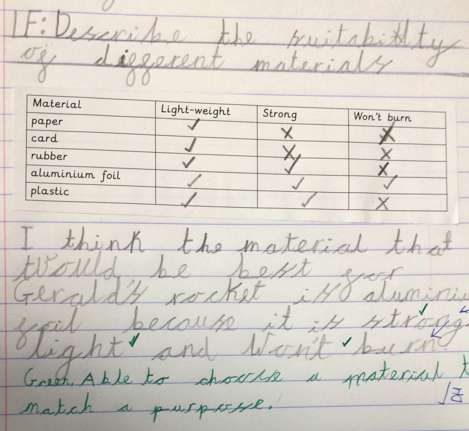 LF: Describe the suitability
of different materials
Material Light-weight Strong Won't burn
paper ✓ ✗ ✗
card ✓ ✗ ✗
rubber ✓ ✓ ✗
aluminium foil ✓ ✓ ✓
plastic ✓ ✓ ✗
I think the material that
Would be best for
Gerald's rocket is aluminiu
foil because it is strong
light and Won't burn
Green. Able to choose a material t
match a purpose.